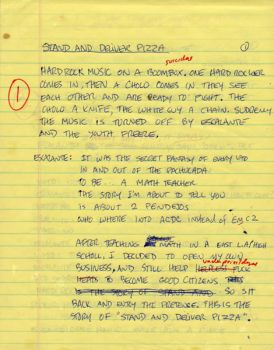 STAND AND DELIVER PIZZA ①
suicidas
HARD ROCK MUSIC ON A BOOMBOX. ONE HARD ROCKER
① COMES IN, THEN A CHOLO COMES IN THEY SEE
EACH OTHER AND ARE READY TO FIGHT. THE
CHOLO A KNIFE, THE WHITE GUY A CHAIN. SUDDENLY
THE MUSIC IS TURNED OFF BY ESCALANTE
AND THE YOUTH FREEZE.
ESCALANTE: IT WAS THE SECRET FANTASY OF EVERY
IN AND OUT OF THE
TO BE.. A MATH TEACHER
THE STORY I'M ABOUT TO TELL YOU
IS ABOUT 2 PENDEJOS
WHO WHERE INTO AC/DC INSTEAD OF
AFTER TEACHING MATH IN A EAST LA HIGH
SCHOLL, I DECIDED TO OPEN MY OWN
BUSINESS, AND STILL HELP HELPLESS
HEADS TO BECOME GOOD CITIZENS. THIS
IS THE STORY OF STAND AND SO SIT
BACK AND ENJOY THE PRETENCE. THIS IS THE
STORY OF "STAND AND DELIVER PIZZA".